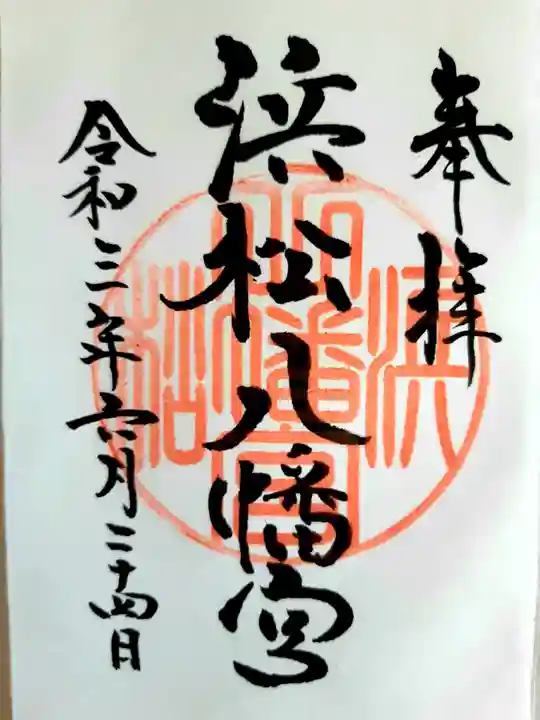 奉拝
浜松八幡宮
令和三年六月二十四日
浜松
八幡宮